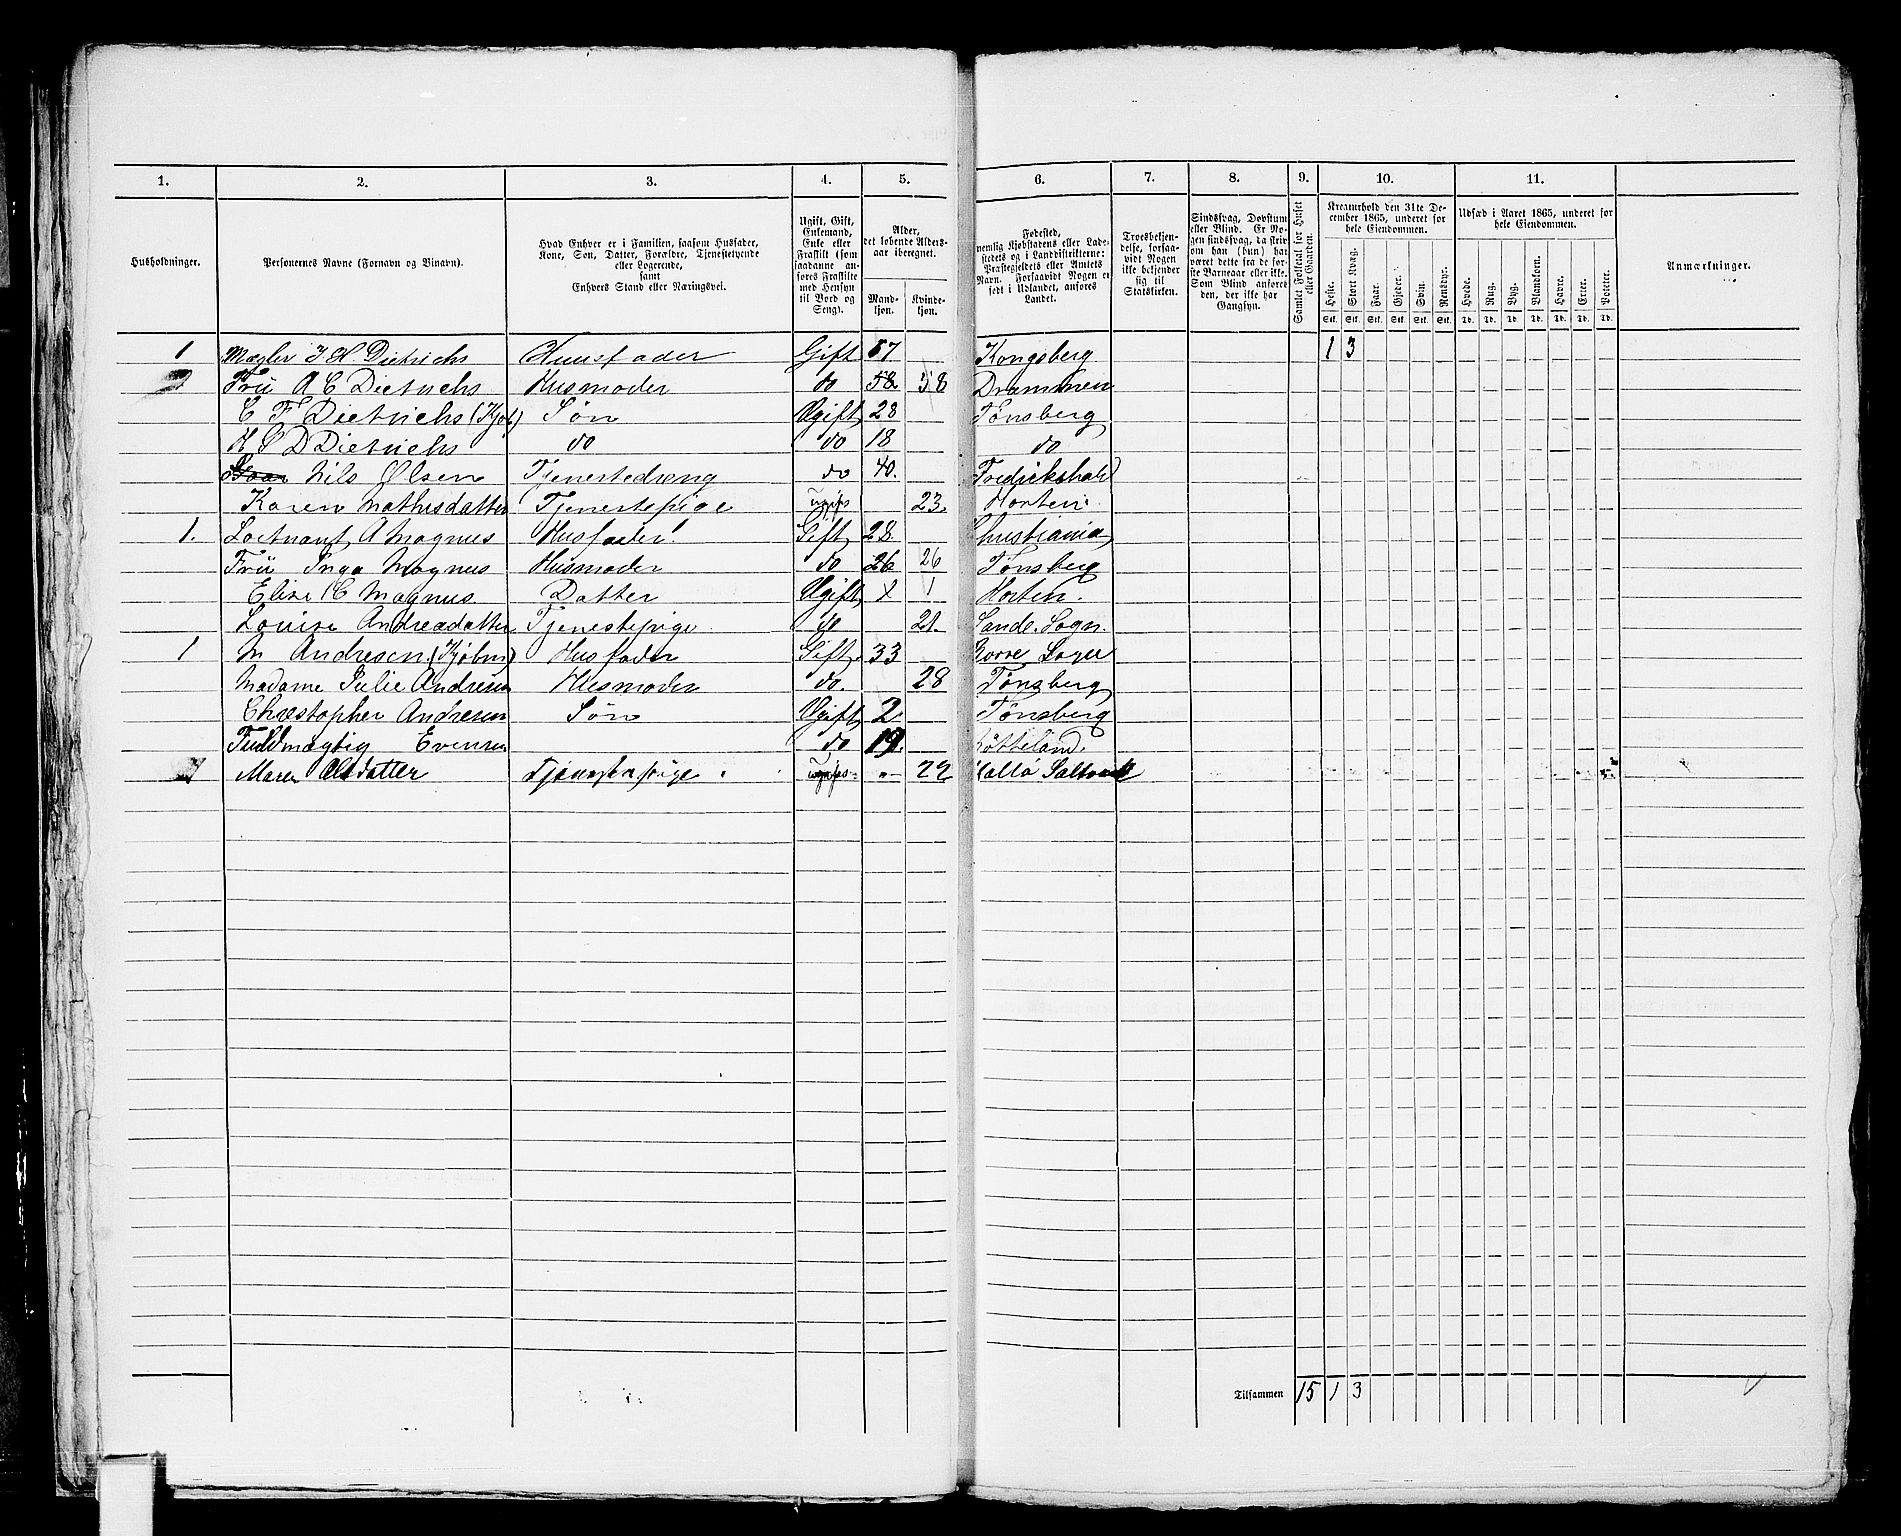 1. 2. 3. 4. 5. 6. 7. 8. 9. 10. 11.
Husholdninger. Personernes Navne (Fornavn og Binavn). Hvad Enhver er i Familien, saasom Husfader, Kone, Søn, Datter, Forældre, Tjenestetyende eller Logerende, samt Enhvers Stand eller Næringsvei. Ugift, Gift, Enkemand, Enke eller Fraskilt (som saadanne anføres Fraskilte med Hensyn til Bord og Seng). Alder, det løbende Aldersaar iberegnet. Mandkjøn. Kvindekjøn. Fødested, nemlig Kjøbstadens eller Ladestedets og i Landdistrikterne: Præstegjeldets eller Amtets Navn. Forsaavidt Nogen er født i Udlandet, anføres Landet. Troesbekjendelse, forsaavidt Nogen ikke bekjender sig til Statskirken. Sindssvag, Døvstum eller Blind. Er Nogen sindssvag, da skrives om han (hun) har været dette fra de første Barneaar eller ikke. Som Blind anføres den, der ikke har Gangsyn. Samlet Folketal for Huset eller Gaarden. Kreaturhold den 31te December 1865, underet for hele Eiendommen. Udsæd i Aaret 1865, underet for hele Eiendommen. Anmærkninger.
Heste. Stort Kvæg. Faar. Gjeder. Svin. Rensdyr. Hvede. Rug. Byg. Blandkorn. Havre. Erter. Poteter.
Stk. Stk. Stk. Stk. Stk. Stk. Td. Td. Td. Td. Td. Td. Td.
1 Mægler J H. Dietrichs Huusfader Gift 57 Kongsberg 1 3
Frü A C Dietrichs Husmoder do 58 58 Drammen
C F Dietrichs (Kjøb) Søn Ugift 28 Tønsberg
H C D Dietrichs do do 18 do
Nils Olsen Tjenestedreng do 40. Fredrikshald
Karen Mathisdatter Tjenestepige ugift 23. Horten.
1. Loitnant A Magnus Husfader Gift 28 Christiania
Frü Inga Magnus Husmoder do 26 26 Tønsberg
Elise C Magnus Datter Ugift 1 Horten.
Louise Andreadatter Tjenestepige do 21. Sande Sogn.
1 M Andresen (Kjøbm) Husfader Gift. 33 Borre Sogn
Madame Julie Andresen Husmoder do. 28 Tønsberg
Christopher Andresen Søn Ugift 2 Tønsberg
Fuldmægtig Evensen do 19.
Maren Olsdatter Tjenestepige ugift 22
Tilsammen 15 1 3